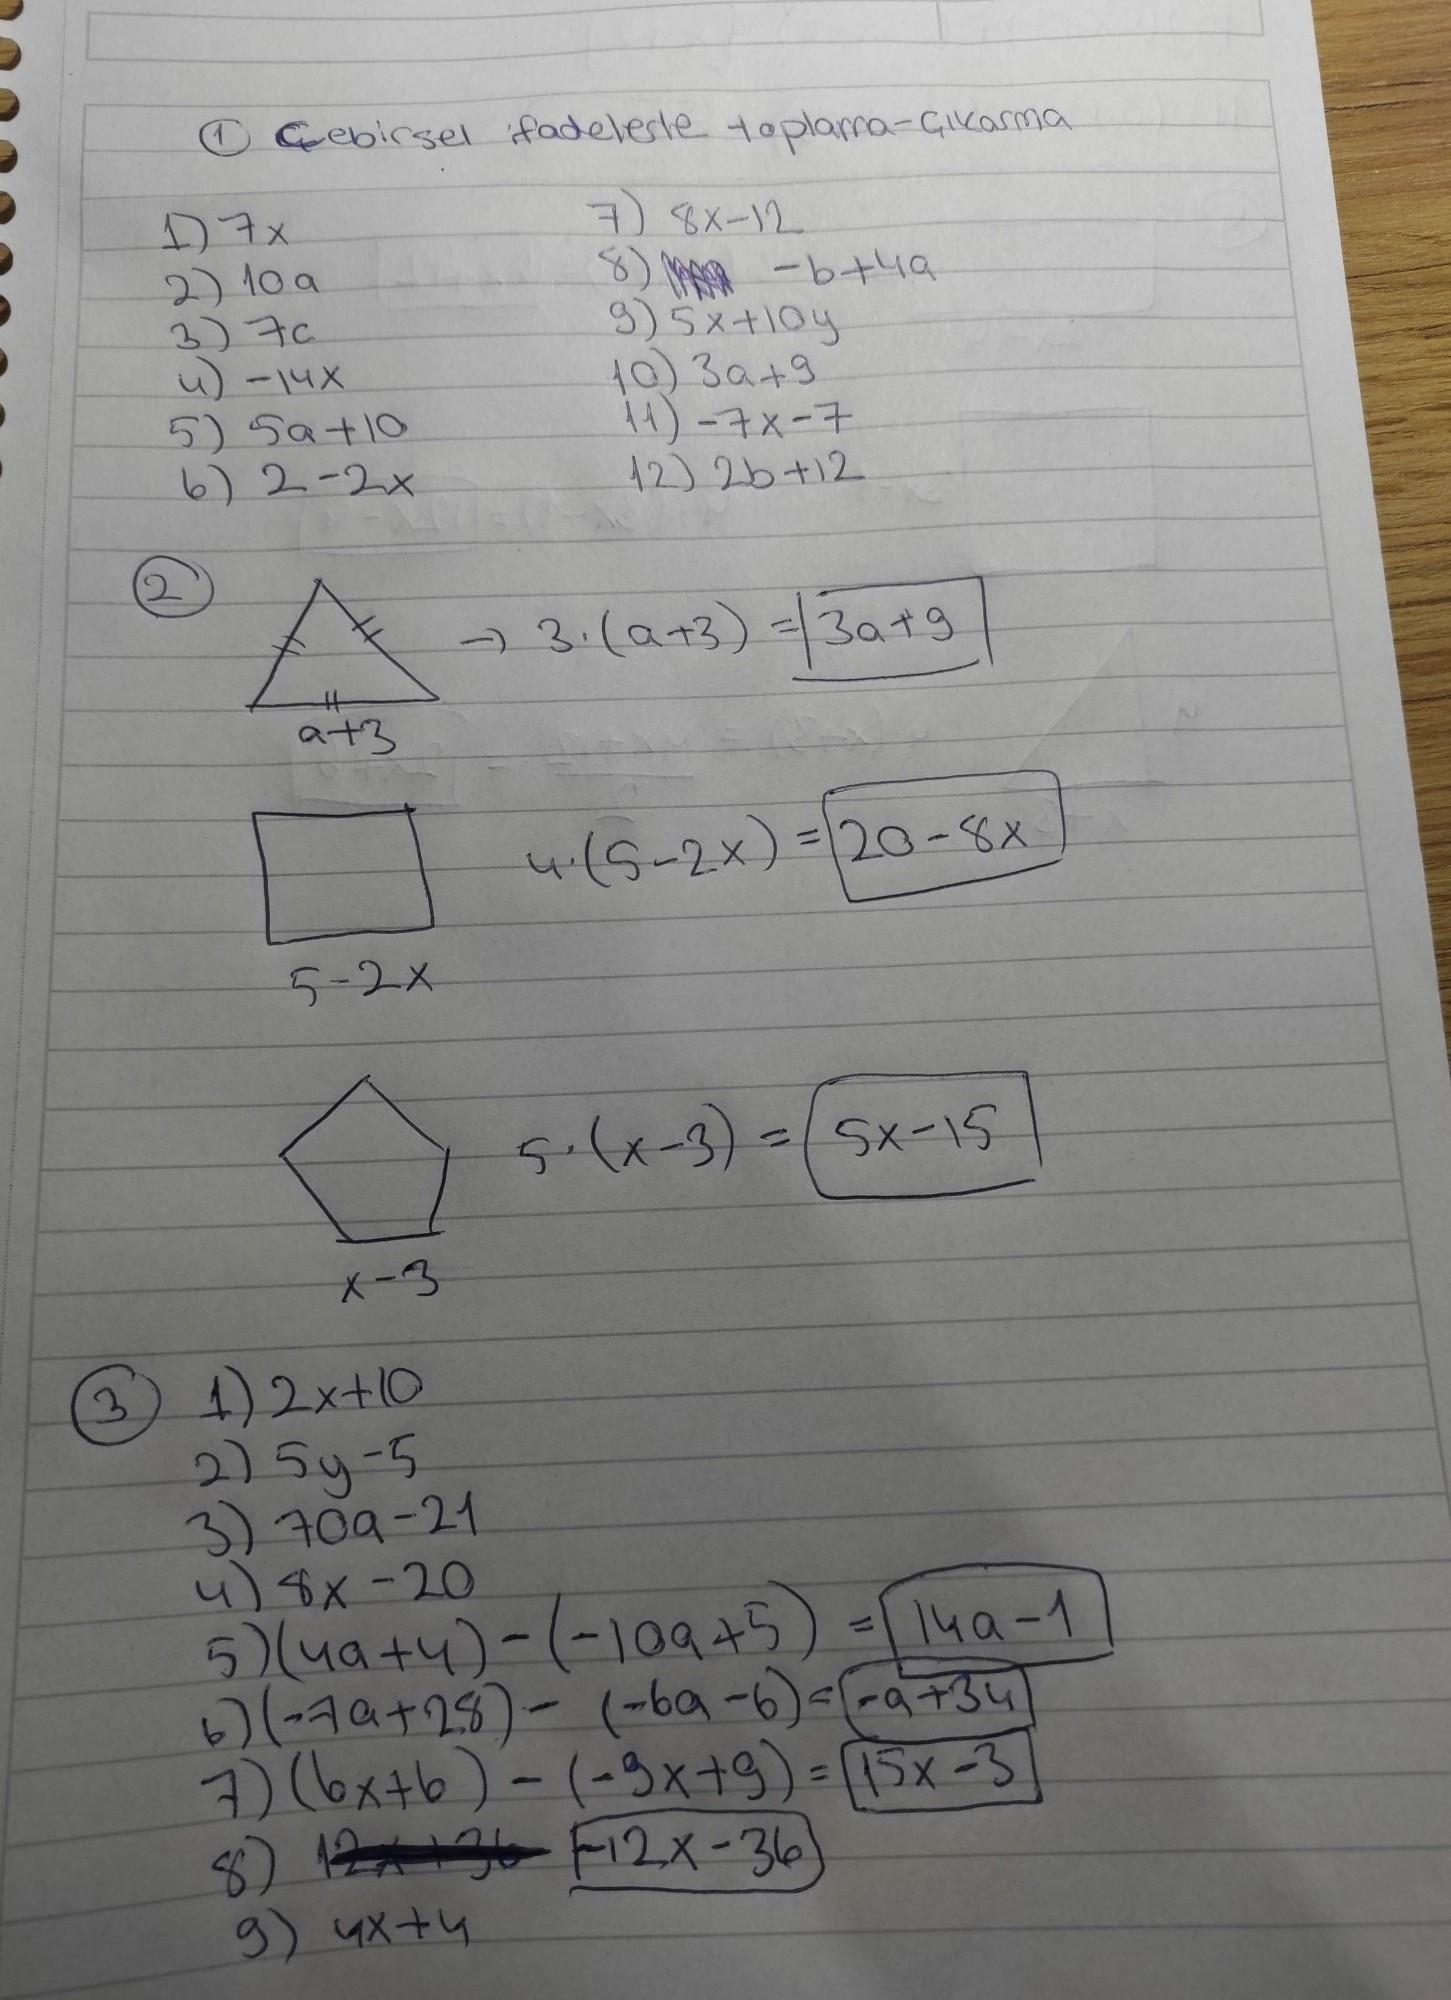 ① Cebirsel ifadelerle toplama-Çıkarma
1) 7x
2) 10a
3) 7c
4) -14x
5) 5a+10
6) 2-2x
7) 8x-12
8) -b+4a
9) 5x+10y
10) 3a+9
11) -7x-7
12) 2b+12
②
→ 3.(a+3) = 3a+9
a+3
4.(5-2x) = 20-8x
5-2x
5.(x-3) = 5x-15
x-3
③ 1) 2x+10
2) 5y-5
3) 70a-21
4) 8x-20
5) (4a+4)-(-10a+5) = 14a-1
6) (-7a+28)- (-6a-6) = -a+34
7) (6x+6) - (-9x+9) = 15x-3
8) -12x-36
9) 4x+4